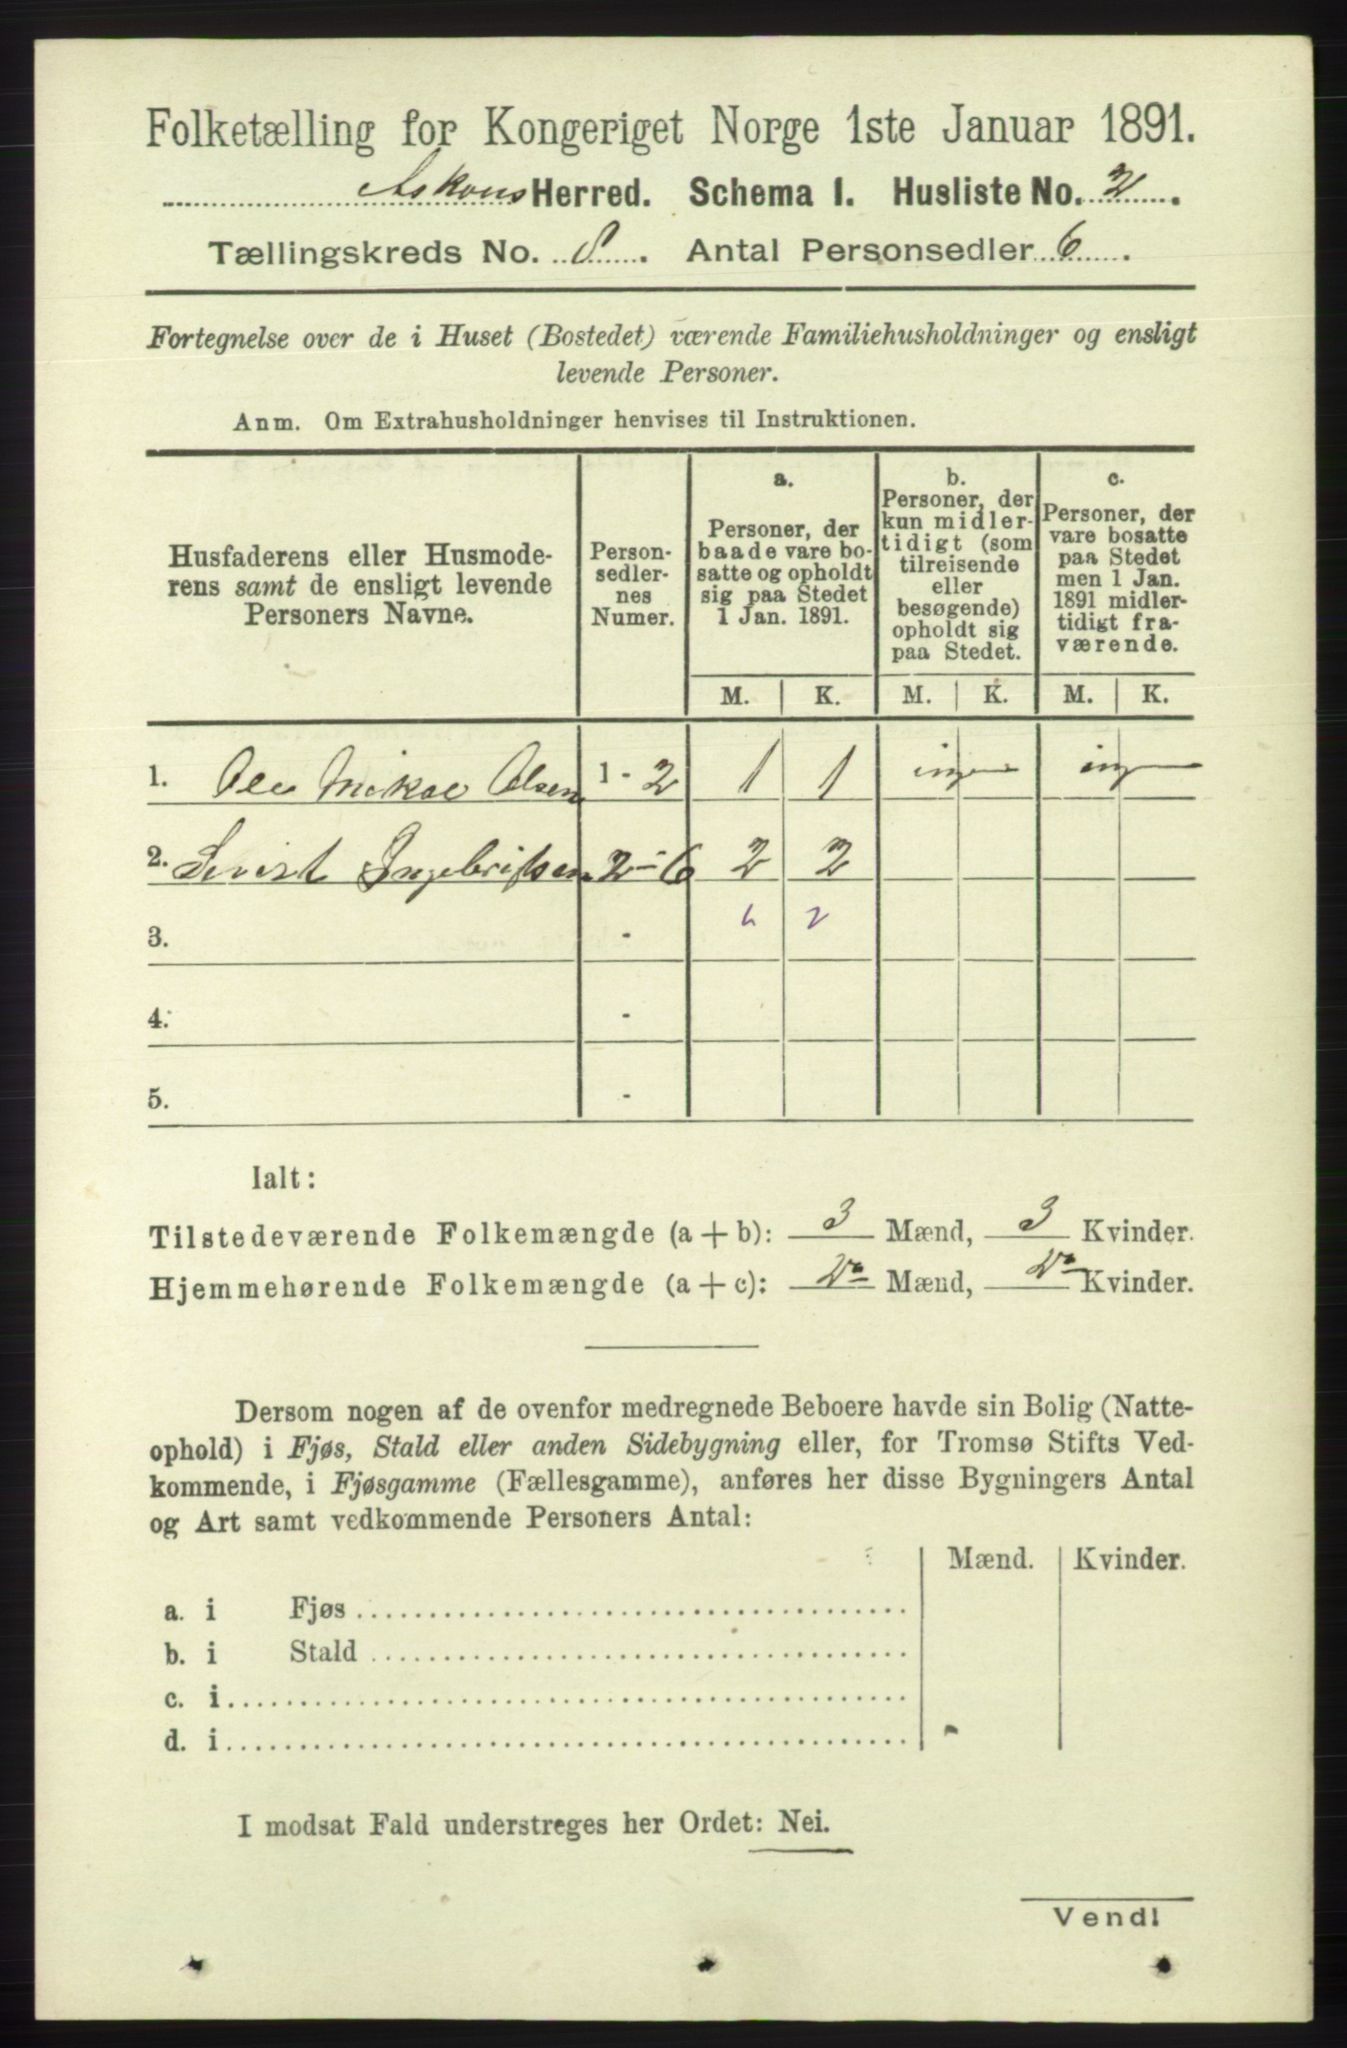 Folketælling for Kongeriget Norge 1ste Januar 1891.
Askvns Herred. Schema 1. Husliste No. 2.
Tællingskreds No. 8. Antal Personsedler 6.
Fortegnelse over de i Huset (Bostedet) værende Familiehusholdninger og ensligt
levende Personer.
Anm. Om Extrahusholdninger henvises til Instruktionen.
Husfaderens eller Husmode-
rens samt de ensligt levende
Personers Navne.
Person-
sedler-
nes
Numer.
a.
Personer, der
baade vare bo-
satte og opholdt
sig paa Stedet
1 Jan. 1891.
b.
Personer, der
kun midler-
tidigt (som
tilreisende
eller
besøgende)
opholdt sig
paa Stedet.
c.
Personer, der
vare bosatte
paa Stedet
men 1 Jan.
1891 midler-
tidigt fra-
værende.
M. K. M. K. M. K.
1. Ole Mikal Olsen 1 - 2 1 1
2. Sivert Ingebrigtsen 2 - 6 2 2
3. -
4. -
5. -
Ialt:
Tilstedeværende Folkemængde (a + b): 3 Mænd, 3 Kvinder.
Hjemmehørende Folkemængde (a + c): Mænd, Kvinder.
Dersom nogen af de ovenfor medregnede Beboere havde sin Bolig (Natte-
ophold) i Fjøs, Stald eller anden Sidebygning eller, for Tromsø Stifts Ved-
kommende, i Fjøsgamme (Fællesgamme), anføres her disse Bygningers Antal
og Art samt vedkommende Personers Antal:
Mænd. Kvinder.
a. i Fjøs
b. i Stald
c. i
d. i
I modsat Fald understreges her Ordet: Nei.
Vend!